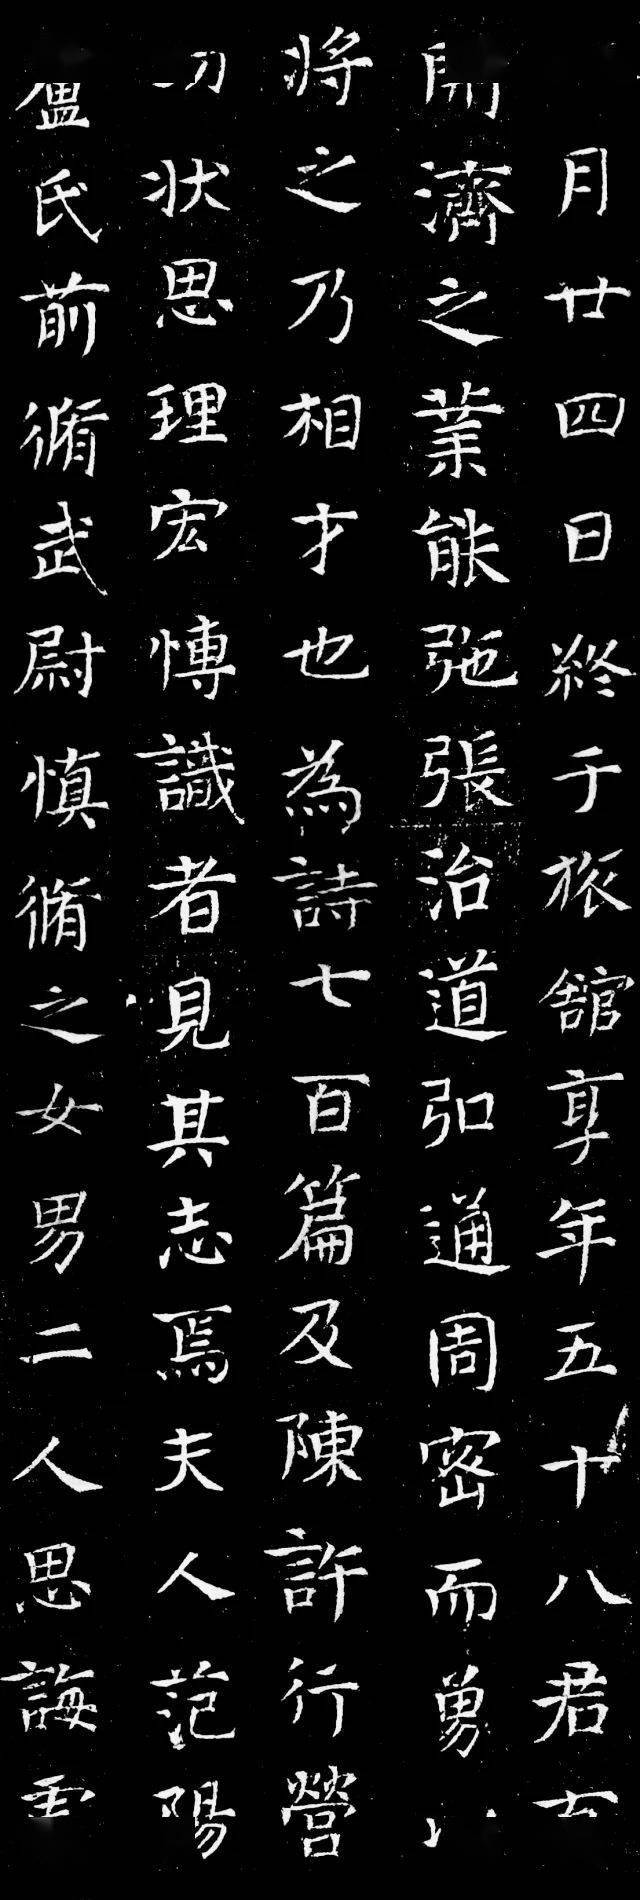 月廿四日終于旅舘享年五十八君
開濟之業能弛張治道弘通周密而勇
將之乃相才也為詩七百篇及陳許行營
功狀思理宏愽識者見其志焉夫人范陽
盧氏前脩武尉慎脩之女男二人思誨